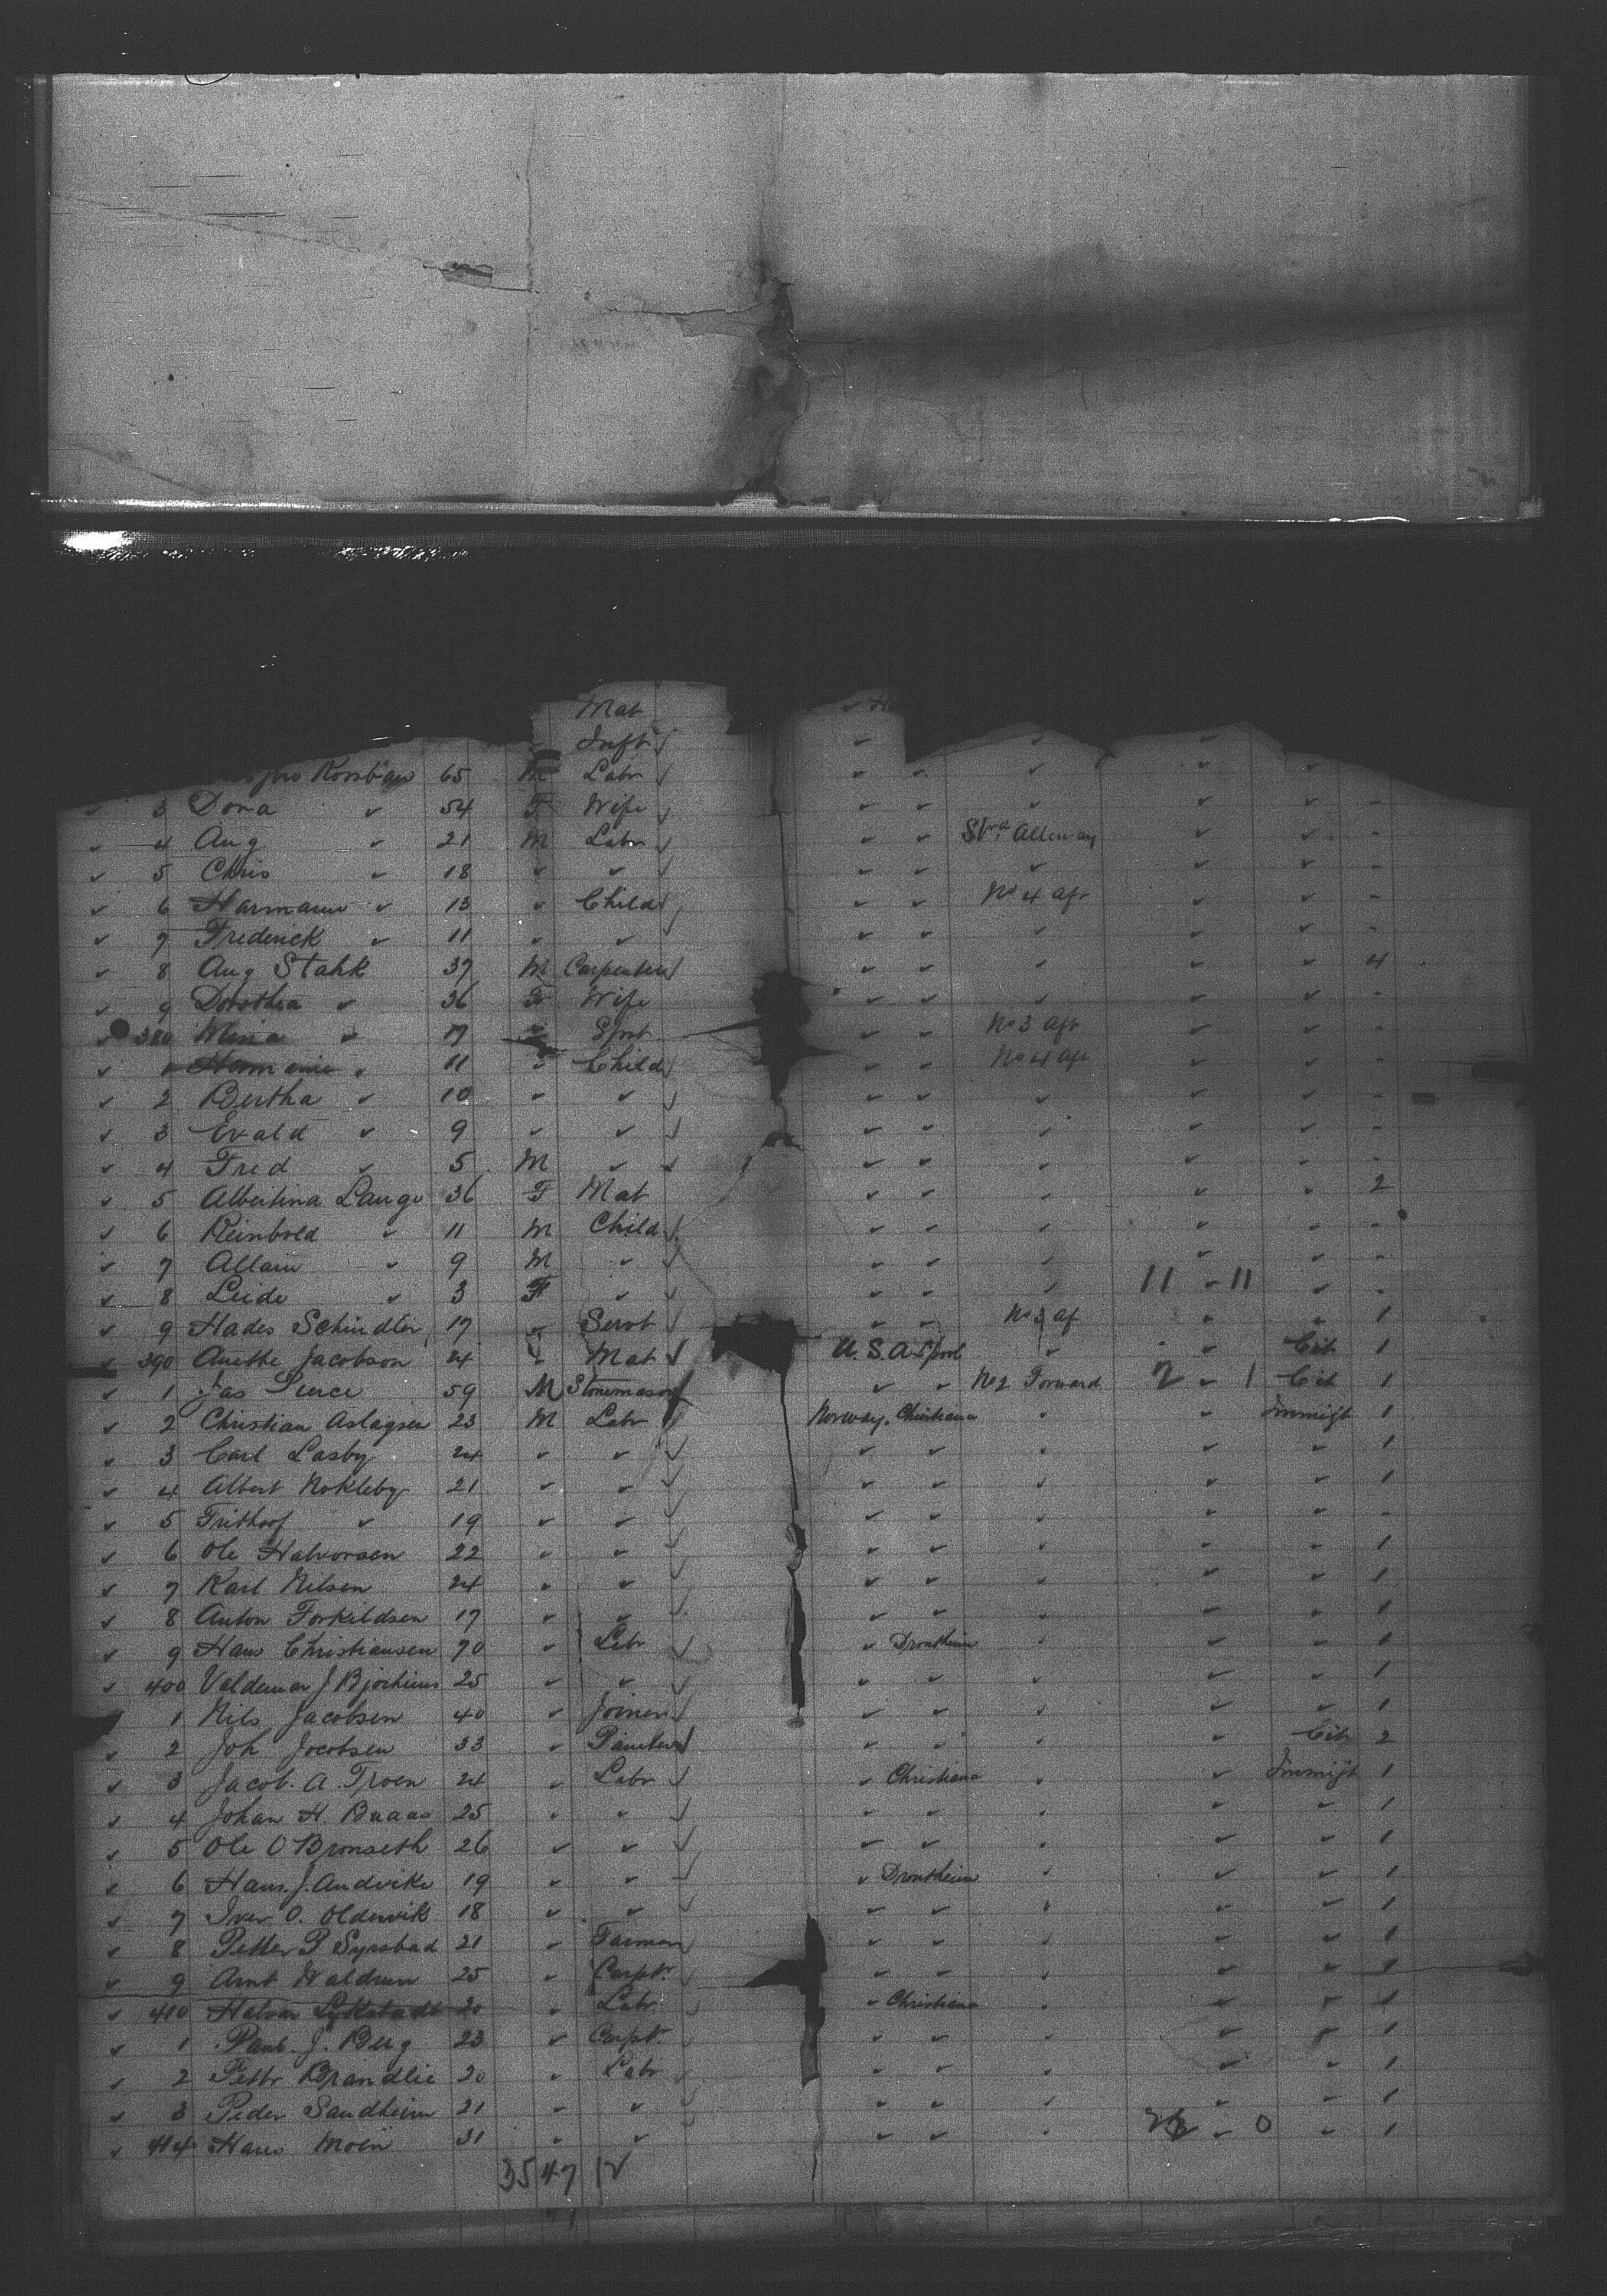 Mat
Inft
65 M Labr
3 Dora 54 F Wife
4 Aug 21 M Labr Alleway
5 Chris 18
6 Harmann 13 Child No 4 Aft
7 Frederick 11
8 Aug Stahk 37 M Carpenter 4
9 Dorothea 36 F Wife
380 Mina 17 Spst No 3 Aft
1 11 Child No 4 Aft
2 Bertha 10
3 Evald 9
4 Fred 5 M
5 Albertina Lange 36 F Mat 2
6 Reinhold 11 M Child
7 9 M
8 Leide 3 F 11 11
9 Hades Schindler 17 Servt No 3 Af 1
390 Anette Jacobson 24 Mat U.S.A. Cit 1
1 Jas Pierce 59 M Stonemason No 2 Forward 2 1 Cit 1
2 Christian Aslagsen 23 M Labr Norway. Christiana Immigt 1
3 Carl Lasby 24 1
4 Albert Nokleby 21 1
5 Frithoof 19
6 Ole Halvorsen 22 1
7 Karl Nilsen 24 1
8 Anton Torkildsen 17 1
9 Hans Christiansen 70 Labr Drontheim 1
400 Valdemar J 25 1
1 Nils Jacobsen 40 Joiner 1
2 Joh Jacobsen 33 Painter Cit 2
3 Jacob. A. Troen 24 Labr Christiana Immigt 1
4 Johan H. Buaas 25 1
5 Ole O Bronseth 26 1
6 Hans. J. Andvike 19 Drontheim 1
7 Iver O. Oldervik 18 1
8 Petter P 21 Farmer 1
9 Arnt Waldrum 25 Carptr 1
410 Halvor 20 Labr Christiana 1
1 Paul. J. Berg 23 Carptr 1
2 Brandlie 20 Labr 1
3 Peder Sandheim 21 1
414 Hans Moen 31 0 1
35 47